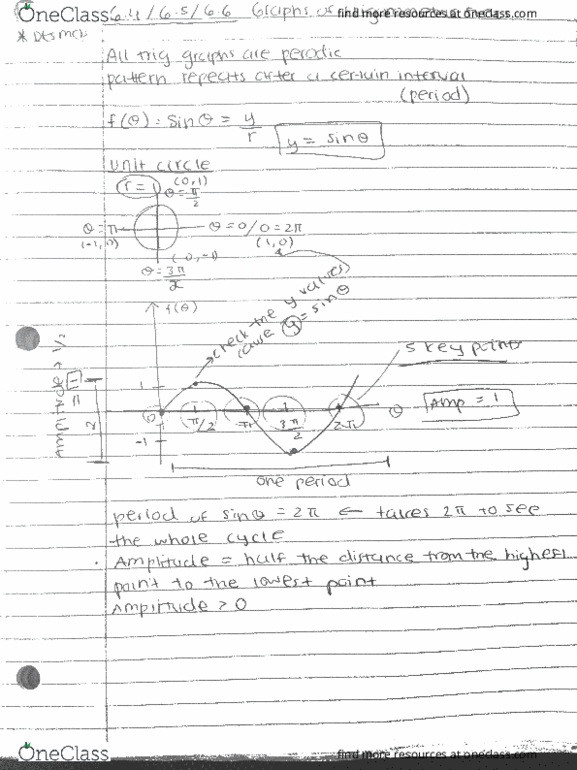 OneClass 6.4/6.5/6.6 Graphs of
find more resources at oneclass.com
All trig graphs are perodic
pattern repeats after a certain interval
(period)
f(θ) = sinθ = y/r
y = sinθ
unit circle
r = 1
(0,1)
θ = π/2
θ = π
(-1,0)
θ=0/θ=2π
(1,0)
(0,-1)
θ = 3π/2
f(θ)
check the y values
cause y = sinθ
5 key points
Amplitude → 1/2
= 1
2
1
0
π/2
π
3π/2
2π
θ
-1
Amp = 1
one period
period of sinθ = 2π ← takes 2π to see
the whole cycle
. Amplitude = half the distance from the highest
point to the lowest point
Ampitude > 0
OneClass
find more resources at oneclass.com